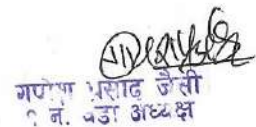 गणेश प्रसाद जैसी
नं. वडा अध्यक्ष